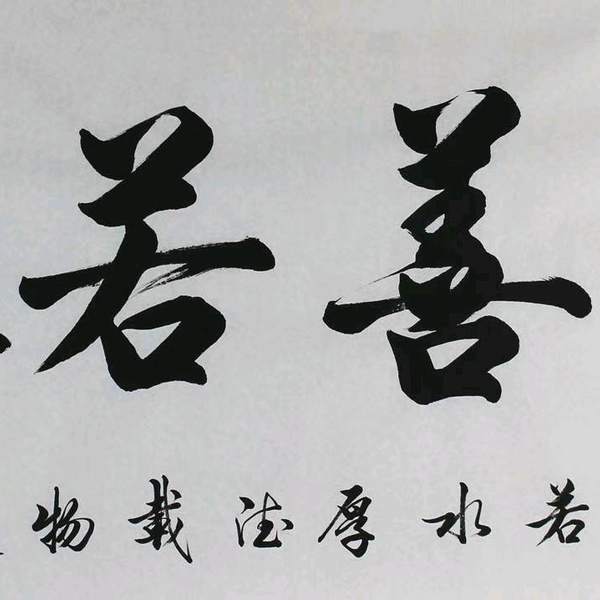 善若
若水厚德载物